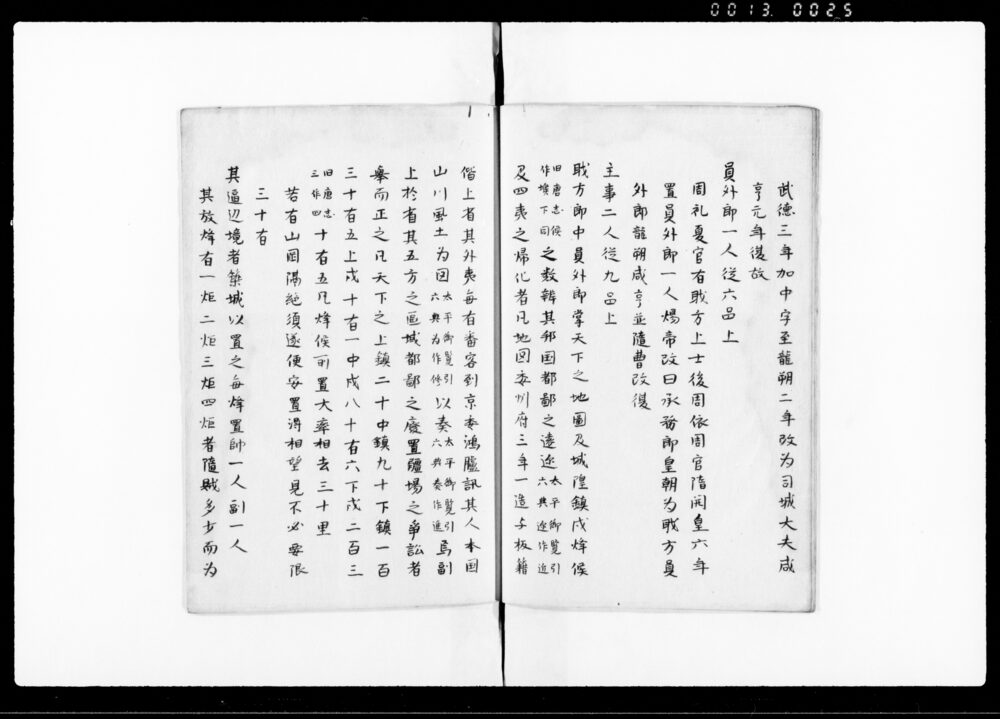 0013 0025
武德三年加中字至龍朔二年改为司城大夫咸
亨元年復故
員外郎一人従六品上
周礼夏官有職方上士後周依周官隋開皇六年
置員外郎一人煬帝改曰承務郎皇朝为職方員
外郎龍朔咸亨並隨曹改復
主事二人従九品上
職方郎中員外郎掌天下之地圖及城隍鎮戍烽候
旧唐志候
作堠下同
之数辨其邦国都鄙之遠迩
太平御覽引
六典迩作近
及四夷之帰化者凡地図委州府三年一造与板籍
偕上省其外夷每有番客到京委鴻臚訊其人本国
山川風土为図
太平御覽引
六典为作修
以奏
太平御覽引
六典奏作進
焉副
上於省其五方之區域都鄙之廢置疆場之爭訟者
舉而正之凡天下之上鎮二十中鎮九十下鎮一百
三十有五上戍十有一中戍八十有六下戍二百三
旧唐志
三作四
十有五凡烽候所置大率相去三十里
若有山岡隔絶須逐便安置得相望見不必要限
三十有
其逼辺境者築城以置之每烽置帥一人副一人
其放烽有一炬二炬三炬四炬者隨賊多少而为